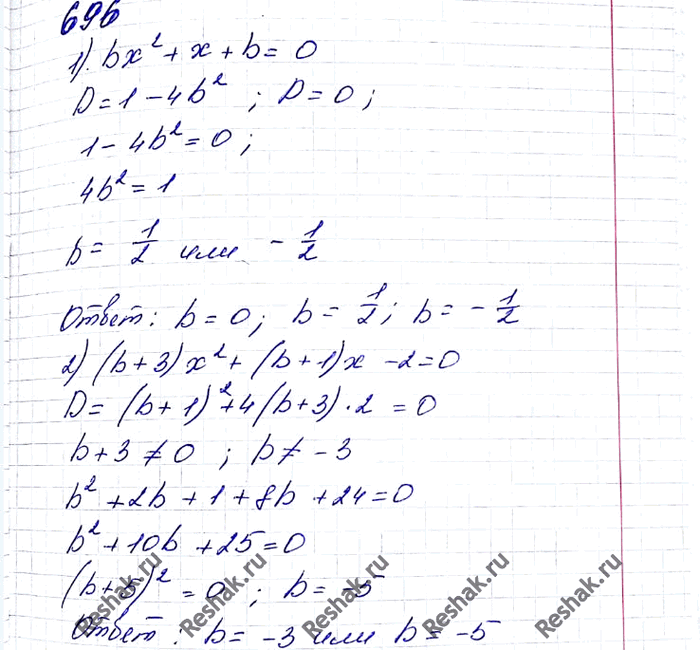 696
1). bx² + x + b = 0
D = 1 - 4b² ; D = 0 ;
1 - 4b² = 0 ;
4b² = 1
b = 1/2 или - 1/2
Ответ: b = 0; b = 1/2; b = - 1/2
2) (b + 3)x² + (b + 1)x - 2 = 0
D = (b + 1)² + 4(b + 3) · 2 = 0
b + 3 ≠ 0 ; b ≠ - 3
b² + 2b + 1 + 8b + 24 = 0
b² + 10b + 25 = 0
(b + 5)² = 0 ; b = -5
Ответ: b = -3 или b = -5
Reshak.ru Reshak.ru Reshak.ru Reshak.ru Reshak.ru